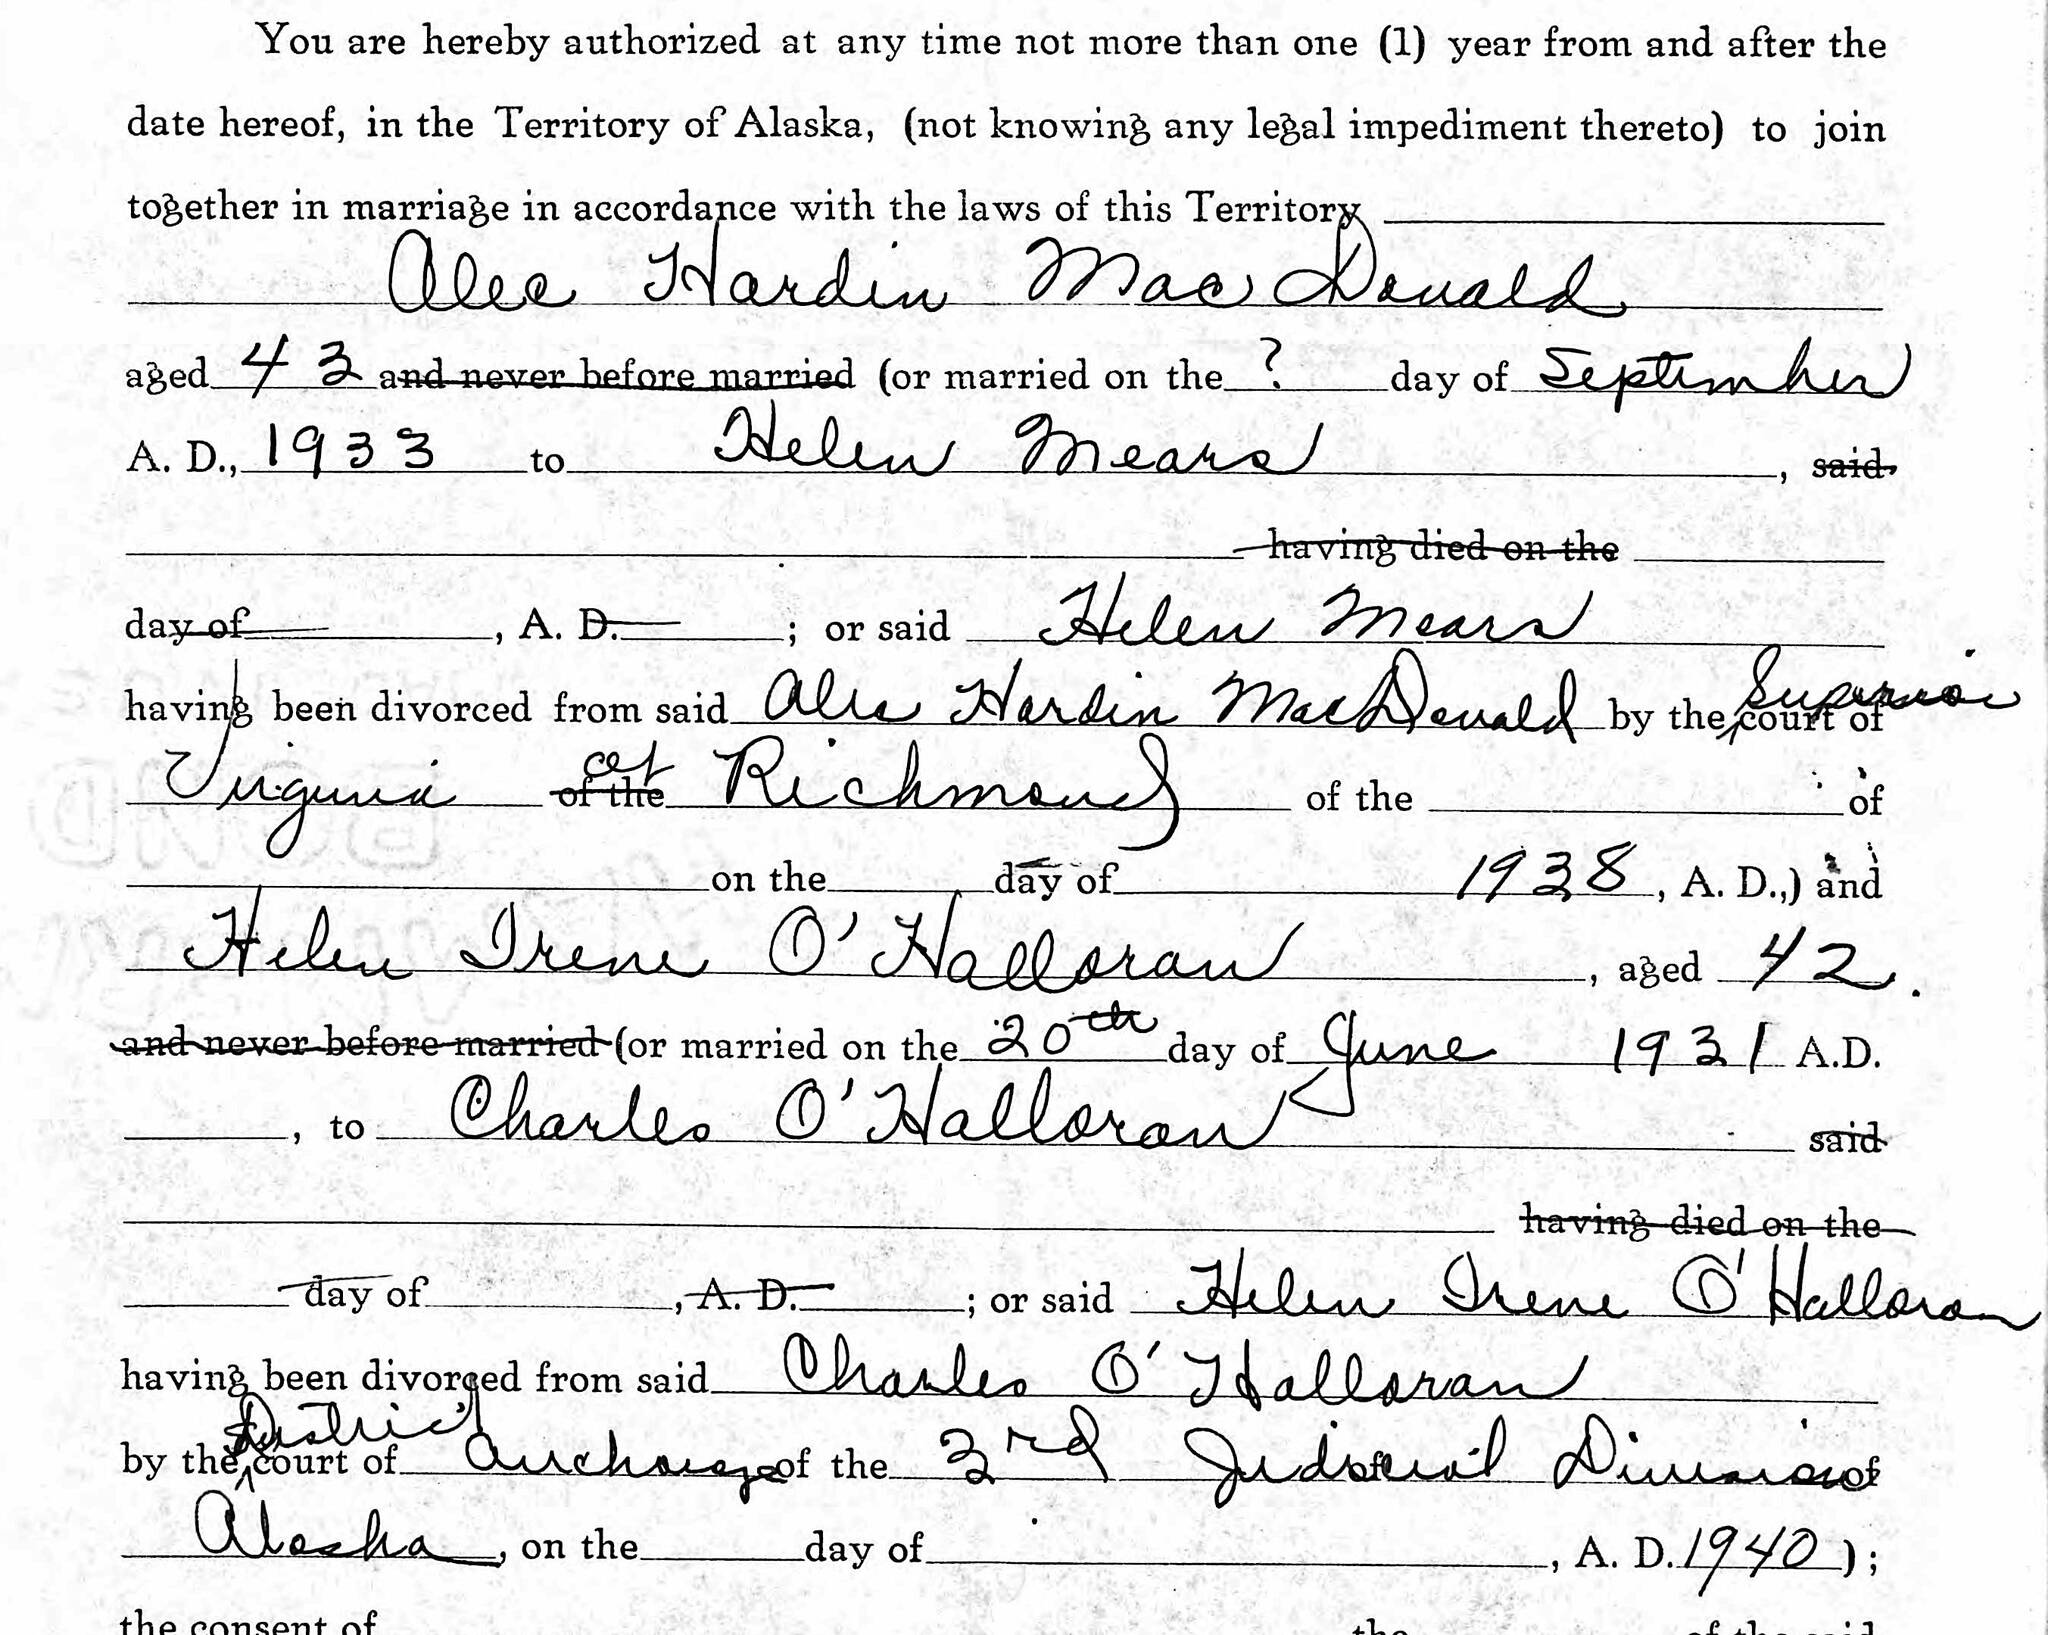 You are hereby authorized at any time not more than one (1) year from and after the
date hereof, in the Territory of Alaska, (not knowing any legal impediment thereto) to join
together in marriage in accordance with the laws of this Territory
Alec Hardin MacDonald
aged 43 and never before married (or married on the ? day of September
A. D., 1933 to Helen Mears, said
having died on the
day of , A. D. ; or said Helen Mears
having been divorced from said Alec Hardin MacDonald by the Superior court of
Virginia of the at Richmond of the of
on the day of 1938, A. D.,) and
Helen Irene O'Halloran, aged 42.
and never before married (or married on the 20th day of June 1931 A.D.
, to Charles O'Halloran said
having died on the
day of , A. D. ; or said Helen Irene O'Halloran
having been divorced from said Charles O'Halloran
by the District court of Anchorage of the 3rd Judicial Division of
Alaska, on the day of , A. D. 1940);
the consent of the of the said